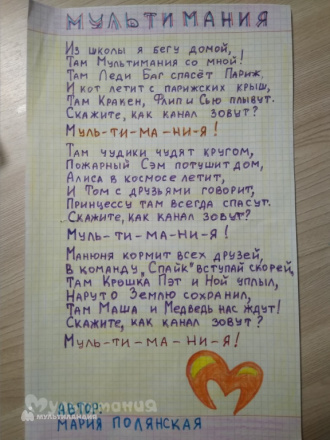 МУЛЬТИМАНИЯ
Из школы я бегу домой,
Там Мультимания со мной!
Там Леди Баг спасёт Париж,
И кот летит с парижских крыш,
Там Кракен, Флип и Сью плывут.
Скажите, как канал зовут?
Муль-ти-ма-ни-я!
Там чудики чудят кругом,
Пожарный Сэм потушит дом,
Алиса в космосе летит,
И Том с друзьями говорит,
Принцессу там всегда спасут.
Скажите, как канал зовут?
Муль-ти-ма-ни-я!
Манюня кормит всех друзей,
В команду „Спайк" вступай скорей,
Там Крошка Пэт и Ной уплыл,
Наруто Землю сохранил,
Там Маша и Медведь нас ждут!
Скажите, как канал зовут?
Муль-ти-ма-ни-я!
Мультимания
МУЛЬТЛАНДИЯ
Автор:
Мария Полянская